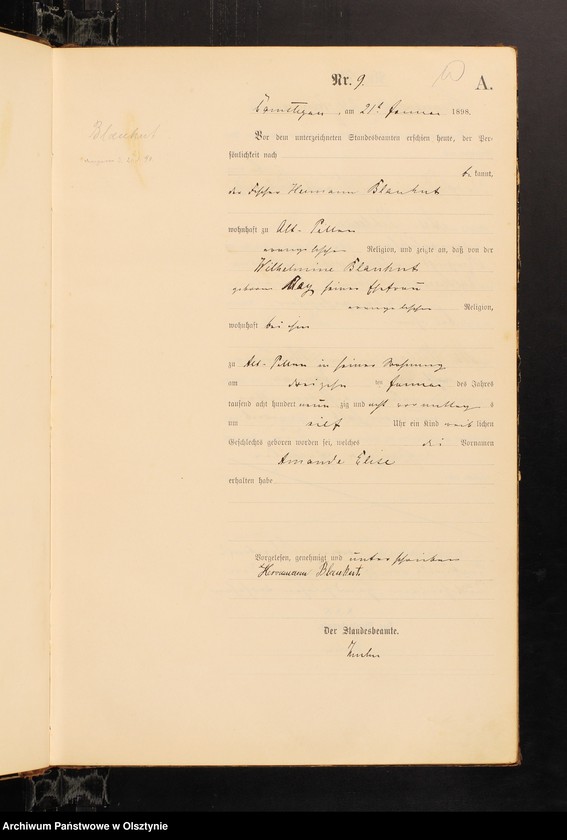 Nr. 9.
A.
am 21t Januar 1898.
Blaukut
Vor dem unterzeichneten Standesbeamten erschien heute, der Per-
sönlichkeit nach
be kannt,
der Fischer Hermann Blaukut
wohnhaft zu Alt-Pillau
evangelischer Religion, und zeigte an, daß von der
Wilhelmine Blaukut
geborene Kay seiner Ehefrau
evangelischer Religion,
wohnhaft bei ihm
zu Alt-Pillau in seiner Wohnung
am dreizehn ten Januar des Jahres
tausend acht hundert neun zig und acht vormittag s
um elf Uhr ein Kind weib lichen
Geschlechts geboren worden sei, welches die Vornamen
Amande Elise
erhalten habe
Vorgelesen, genehmigt und unterschrieben
Hermann Blaukut.
Der Standesbeamte.
Archiwum Państwowe w Olsztynie